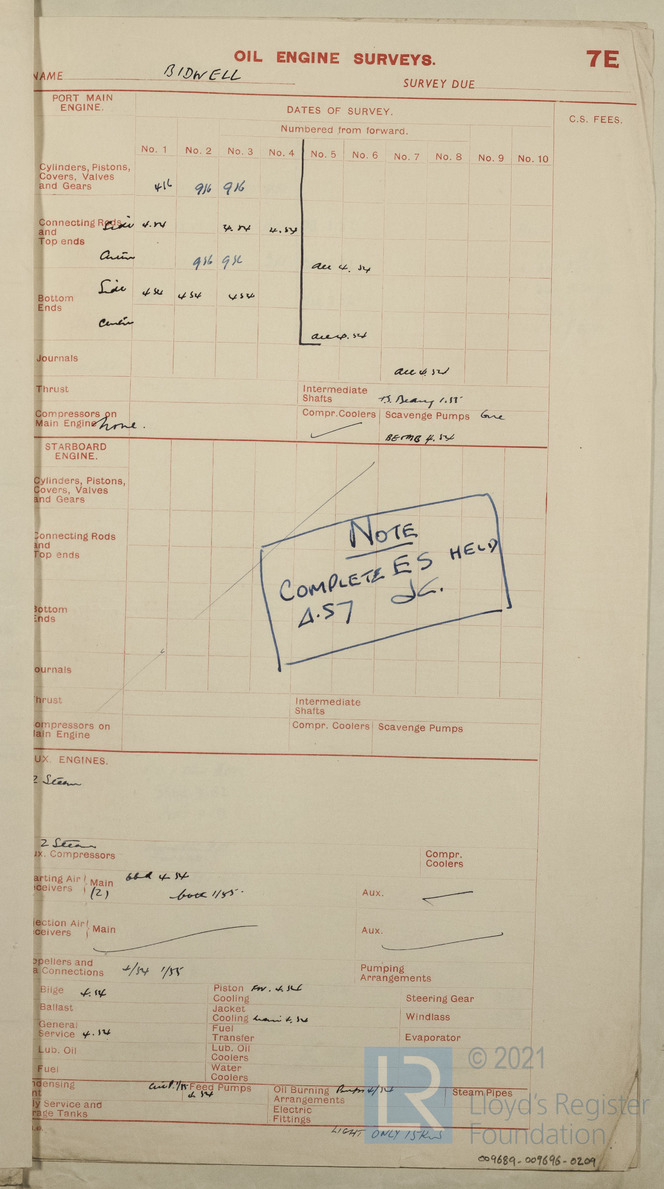 OIL ENGINE SURVEYS.
7E
NAME BIDWELL
SURVEY DUE
PORT MAIN ENGINE.
DATES OF SURVEY.
C.S. FEES.
Numbered from forward.
No. 1 No. 2 No. 3 No. 4 No. 5 No. 6 No. 7 No. 8 No. 9 No. 10
Cylinders, Pistons,
Covers, Valves
and Gears
Connecting Rods Side 4.54 4.54 4.54
and
Top ends
all 4.54
Side
Bottom 4.54 4.54 4.54
Ends
all 4.54
Journals
all 4.54
Thrust
Intermediate
Shafts
Compressors on
Main Engine None.
Compr. Coolers
Scavenge Pumps
4.54
STARBOARD
ENGINE.
Cylinders, Pistons,
Covers, Valves
and Gears
Connecting Rods
and
Top ends
NOTE
COMPLETE ES HELD
4.57
Bottom
Ends
ournals
hrust
Intermediate
Shafts
ompressors on
ain Engine
Compr. Coolers
Scavenge Pumps
UX. ENGINES.
2 Steam
2 Steam
ux. Compressors
Compr.
Coolers
arting Air
ceivers
Main
(2)
4.54
1/55.
Aux.
ection Air
ceivers
Main
Aux.
opellers and
a Connections 4/54 1/55
Pumping
Arrangements
Bilge 4.54
Piston
Cooling
Steering Gear
Ballast
Jacket
Cooling
Windlass
General
Service 4.54
Fuel
Transfer
Evaporator
Lub. Oil
Lub. Oil
Coolers
Fuel
Water
Coolers
ndensing
nt
Feed Pumps
4.54
Oil Burning
Arrangements
Steam Pipes
y Service and
rage Tanks
Electric
Fittings
LIGHT ONLY 15KW
© 2021
LR
Lloyd's Register
Foundation
009689-009696-0209